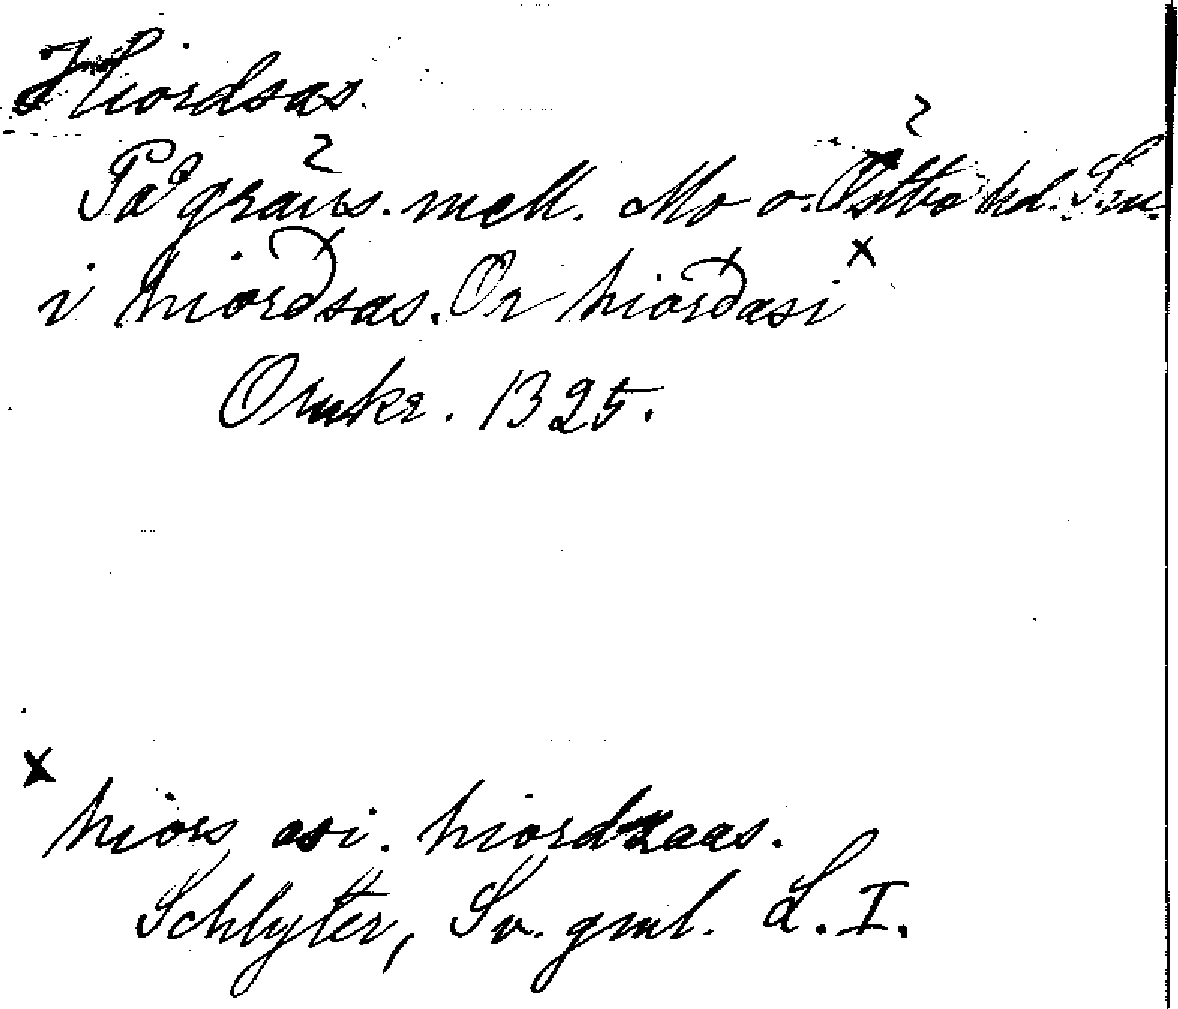 Hiordsas.
På gräns. mell. Mo o. Östbo hd. Sm.
i hiorðsas. Or hiorðasi x
Omkr. 1325.
x hiors asi. hiordzaas.
Schlyter, Sv. gml. L. I.